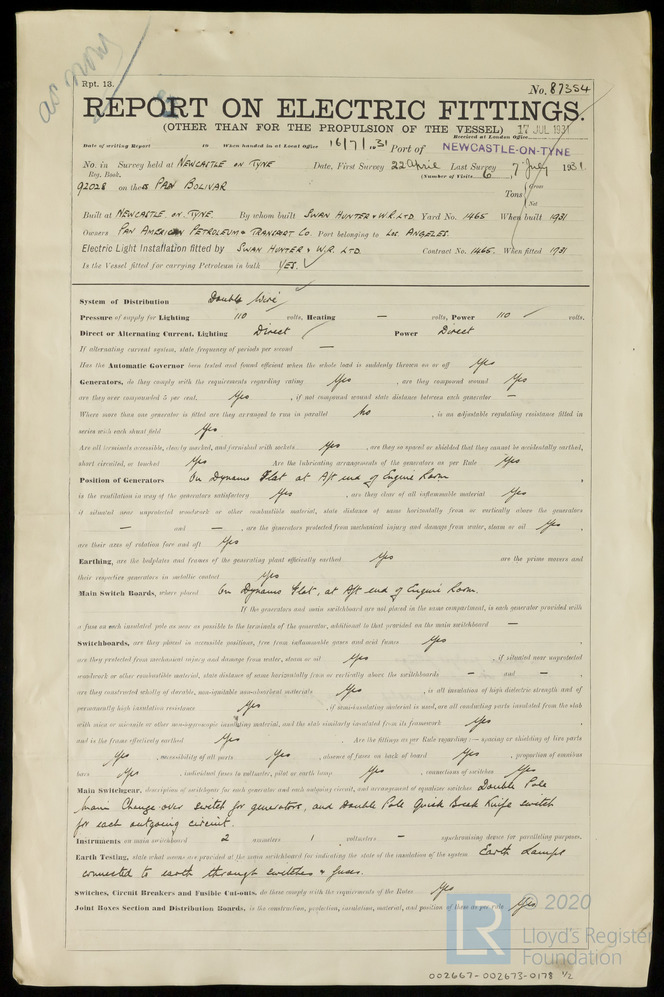 ac now
Rpt. 13.
No. 87354
REPORT ON ELECTRIC FITTINGS.
(OTHER THAN FOR THE PROPULSION OF THE VESSEL) 17 JUL 1931
Received at London Office
Date of writing Report 19 When handed in at Local Office 16/7/1931 Port of NEWCASTLE-ON-TYNE
No. in Survey held at NEWCASTLE ON TYNE Date, First Survey 22 April Last Survey 7 July 1931
Reg. Book. (Number of Visits 6)
92028 on the PAN BOLIVAR Tons Gross
Net
Built at NEWCASTLE ON TYNE. By whom built SWAN HUNTER & W.R. LTD. Yard No. 1465 When built 1931
Owners PAN AMERICAN PETROLEUM & TRANSPORT CO. Port belonging to LOS ANGELES.
Electric Light Installation fitted by SWAN HUNTER & W.R. LTD. Contract No. 1465. When fitted 1931
Is the Vessel fitted for carrying Petroleum in bulk YES.
System of Distribution Double Wire
Pressure of supply for Lighting 110 volts, Heating — volts, Power 110 volts.
Direct or Alternating Current, Lighting Direct Power Direct
If alternating current system, state frequency of periods per second —
Has the Automatic Governor been tested and found efficient when the whole load is suddenly thrown on or off Yes
Generators, do they comply with the requirements regarding rating Yes , are they compound wound Yes
are they over compounded 5 per cent. Yes , if not compound wound state distance between each generator —
Where more than one generator is fitted are they arranged to run in parallel No , is an adjustable regulating resistance fitted in
series with each shunt field Yes
Are all terminals accessible, clearly marked, and furnished with sockets Yes , are they so spaced or shielded that they cannot be accidentally earthed,
short circuited, or touched Yes Are the lubricating arrangements of the generators as per Rule Yes
Position of Generators On Dynamo Flat at Aft end of Engine Room ,
is the ventilation in way of the generators satisfactory Yes , are they clear of all inflammable material Yes
if situated near unprotected woodwork or other combustible material, state distance of same horizontally from or vertically above the generators
— and — , are the generators protected from mechanical injury and damage from water, steam or oil Yes ,
are their axes of rotation fore and aft Yes
Earthing, are the bedplates and frames of the generating plant efficiently earthed Yes are the prime movers and
their respective generators in metallic contact Yes
Main Switch Boards, where placed On Dynamo Flat, at Aft end of Engine Room.
If the generators and main switchboard are not placed in the same compartment, is each generator provided with
a fuse on each insulated pole as near as possible to the terminals of the generator, additional to that provided on the main switchboard —
Switchboards, are they placed in accessible positions, free from inflammable gases and acid fumes Yes ,
are they protected from mechanical injury and damage from water, steam or oil Yes , if situated near unprotected
woodwork or other combustible material, state distance of same horizontally from or vertically above the switchboards — and — ,
are they constructed wholly of durable, non-ignitable non-absorbent materials Yes , is all insulation of high dielectric strength and of
permanently high insulation resistance Yes , if semi-insulating material is used, are all conducting parts insulated from the slab
with mica or micanite or other non-hygroscopic insulating material, and the slab similarly insulated from its framework Yes ,
and is the frame effectively earthed Yes Are the fittings as per Rule regarding:— spacing or shielding of live parts
Yes , accessibility of all parts Yes , absence of fuses on back of board Yes , proportion of omnibus
bars Yes , individual fuses to voltmeter, pilot or earth lamp Yes , connections of switches Yes
Main Switchgear, description of switchgear for each generator and each outgoing circuit, and arrangement of equaliser switches Double Pole
main Change over switch for generators, and Double Pole Quick Break Knife switch
for each outgoing circuit.
Instruments on main switchboard 2 ammeters 1 voltmeters — synchronising device for paralleling purposes.
Earth Testing, state what means are provided at the main switchboard for indicating the state of the insulation of the system Earth Lamps
connected to earth through switches & fuses.
Switches, Circuit Breakers and Fusible Cut-outs, do these comply with the requirements of the Rules Yes
Joint Boxes Section and Distribution Boards, is the construction, protection, insulation, material, and position of these as per rule Yes
© 2020
LR
Lloyd's Register
Foundation
002667-002673-0178 1/2